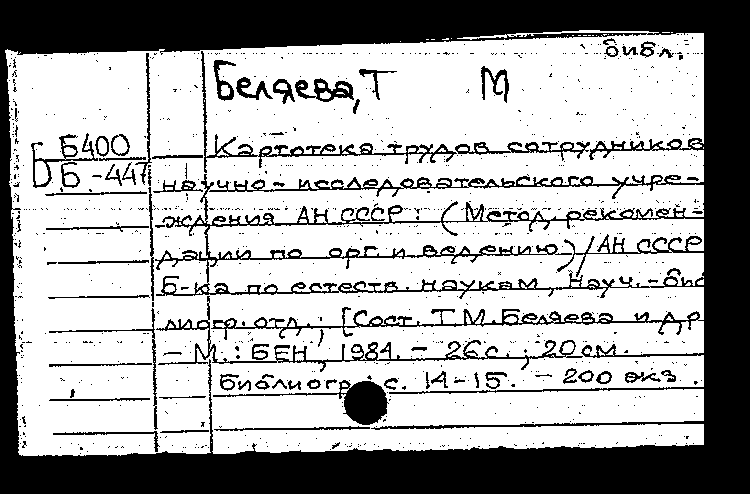 библ.
Беляева, Т М
Б400
Б-447
Картотека трудов сотрудников
научно-исследовательского учре-
ждения АН СССР: (Метод. рекомен-
дации по орг. и ведению)/АН СССР
Б-ка по естеств. наукам, Науч.-биб
лиогр. отд.; [Сост. Т.М.Беляева и др
- М.: БЕН, 1984. - 26с.; 20см.
Библиогр.: с. 14-15. - 200 экз.